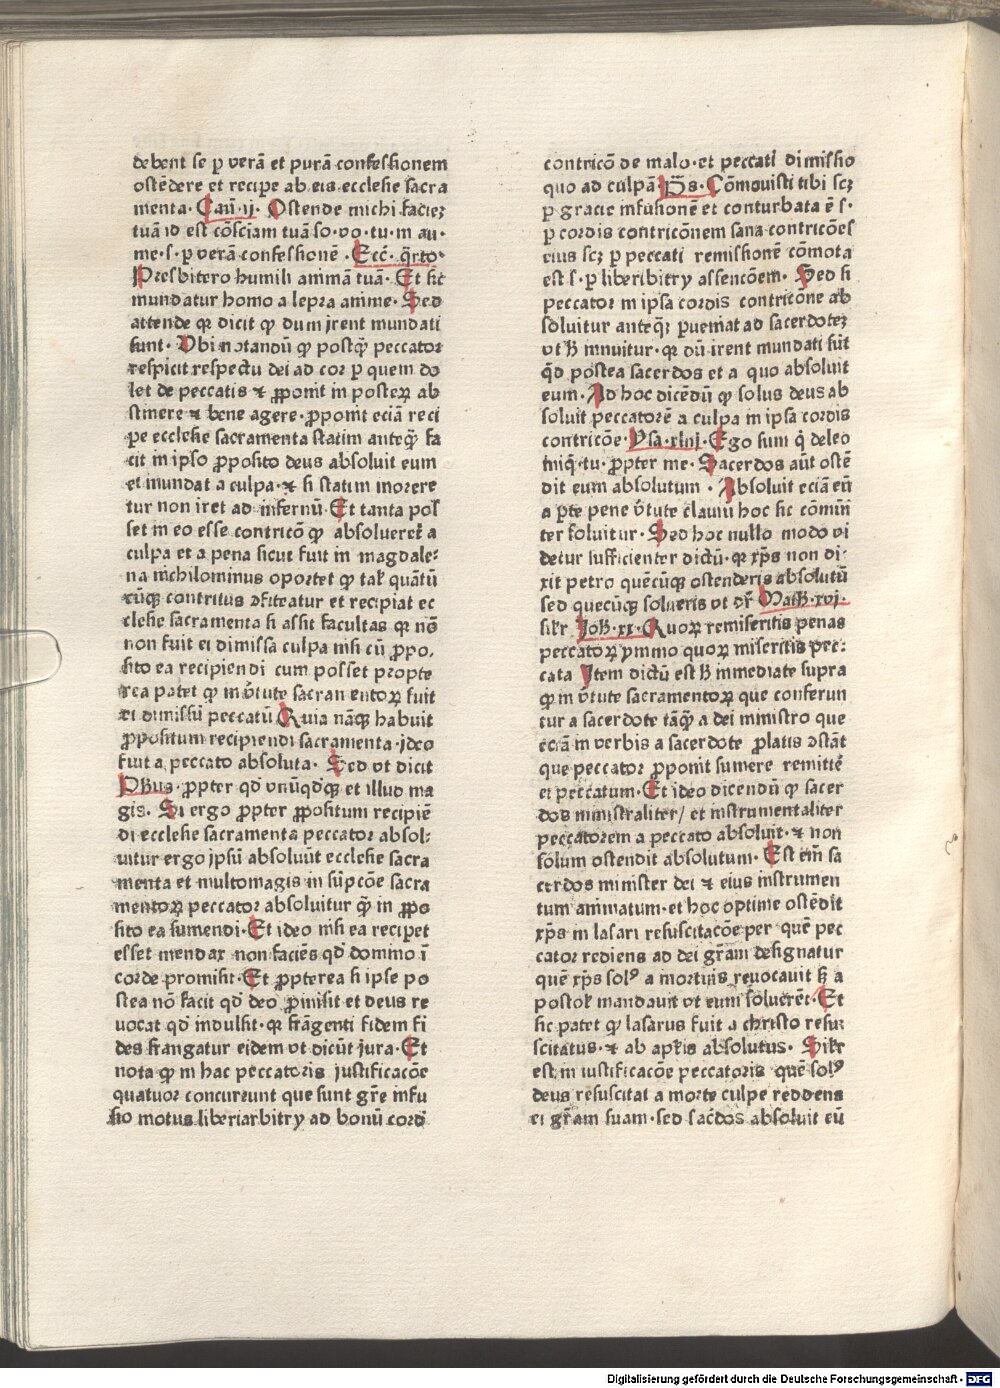 debent se ꝑ verā et purā confessionem
ostēdere et recipe ab eis ecclesie sacra
menta· Can̄·ij· Ostende michi faciēꝫ
tuā id est cōsciam tuā so·vo·tu·in au·
me·s·ꝑ verā confessionē ·Ecc̄·q̄rto·
Presbitero humili animā tuā· Et sic
mundatur homo a lepra anime· Sed
attende qꝛ dicit ꝙ dum irent mundati
sunt· Ubi notandū ꝙ postq̄ peccator
respicit respectu dei ad cor ꝑ quem do
let de peccatis ⁊ ꝓponit in posteꝝ ab
stinere ⁊ bene agere·ꝓponit eciā reci
pe ecclesie sacramenta statim anteq̄ fa
cit in ipso ꝓposito deus absoluit eum
et mundat a culpa·⁊ si statim morere
tur non iret ad infernū·Et tanta pos̄
set in eo esse contricō ꝙ absolueret̄ a
culpa et a pena sicut fuit in magdale:
na nichilominus oportet ꝙ tal̄ quātū
cūqꝫ contritus ꝯfiteatur et recipiat ec
clesie sacramenta si assit facultas qꝛ nō
non fuit ei dimissa culpa nisi cū ꝓpo·
sito ea recipiendi cum posset propte
rea patet ꝙ in v̄tute sacramentoꝝ fuit
ei dimissū peccatū Quia nāqꝫ habuit
ꝓpositum recipiendi sacramenta·ideo
fuit a peccato absoluta· Sed vt dicit
Ph̄us·ꝓpter qd̄ vnūqd̄qꝫ et illud ma
gis· Si ergo ꝓpter ꝓpositum recipiē
di ecclesie sacramenta peccator absol:
uitur ergo ipsū absoluūt ecclesie sacra
menta et multomagis in sūpcōe sacra
mentoꝝ peccator absoluitur q̄ in ꝓpo
sito ea sumendi·Et ideo nisi ea recipet
esset mendax non faciēs qd̄ domino ī
corde promisit·Et ꝓpterea si ipse po
stea nō facit qd̄ deo ꝓmisit et deus re
uocat qd̄ indulsit·qꝛ frāgenti fidem fi
des frangatur eidem vt dicūt jura·Et
nota ꝙ in hac peccatoris justificacōe
quatuor concurrunt que sunt gr̄e infu
sio motus liberiarbitry ad bonū cord̄
contricō de malo·et peccati dimissio
quo ad culpā·P̄s·Cōmouisti tibi scꝫ
ꝑ gracie infusionē et conturbata ē s·
ꝑ cordis contricōnem sana contricōes
eius scꝫ ꝑ peccati remissionē cōmota
est s·ꝑ liberibitry assencōem· Sed si
peccator in ipsa cordis contricōne ab
soluitur anteqꝫ ꝑueniat ad sacerdoteꝫ
vt h̄ innuitur·qꝛ dū irent mundati sūt
qd̄ postea sacerdos et a quo absoluit
eum· Ad hoc dicēdū ꝙ solus deus ab
soluit peccatorē a culpa in ipsa cordis
contricōe·Ysa·xliij·Ego sum q̄ deleo
iniq̄·tu·ꝓpter me·Sacerdos aūt ostē
dit eum absolutum ·Absoluit eciā eū
a ꝑte pene v̄tute clauiū hoc sic cōmin̄
ter soluitur· Sed hoc nullo modo vi
detur sufficienter dictū·qꝛ xp̄s non di·
xit petro quēcūqꝫ ostenderis absolutū
sed quecūqꝫ solueris vt dr̄ Math̄·xvj·
silr̄ Joh̄·xx·Quoꝝ remiseritis penas
peccatoꝝ ymmo quoꝝ miseritis pec:
cata Item dictū est h̄ immediate supra
ꝙ in v̄tute sacramentoꝝ que conferun
tur a sacerdote tāq̄ a dei ministro que
eciā in verbis a sacerdote ꝓlatis ꝯstāt
que peccator ꝓponit sumere remittē
ei peccatum·Et ideo dicendū ꝙ sacer
dos ministraliter/ et instrumentaliter
peccatorem a peccato absoluit·⁊ non
solum ostendit absolutum· Est em̄ sa
cerdos minister dei ⁊ eius instrumen
tum animatum·et hoc optime ostēdit
xp̄s in lasari resuscitacōe per quē pec
cator rediens ad dei gr̄am designatur
quē xp̄s solꝰ a mortuis reuocauit sꝫ a
postol̄ mandauit vt eum soluerēt·Et
sic patet ꝙ lasarus fuit a christo resu
scitatus·⁊ ab apl̄is absolutus· Silr̄
est in iustificacōe peccatoris quē solꝰ
deus resuscitat a morte culpe reddens
ei gr̄am suam·sed sac̄dos absoluit eū
Digitalisierung gefördert durch die Deutsche Forschungsgemeinschaft - DFG